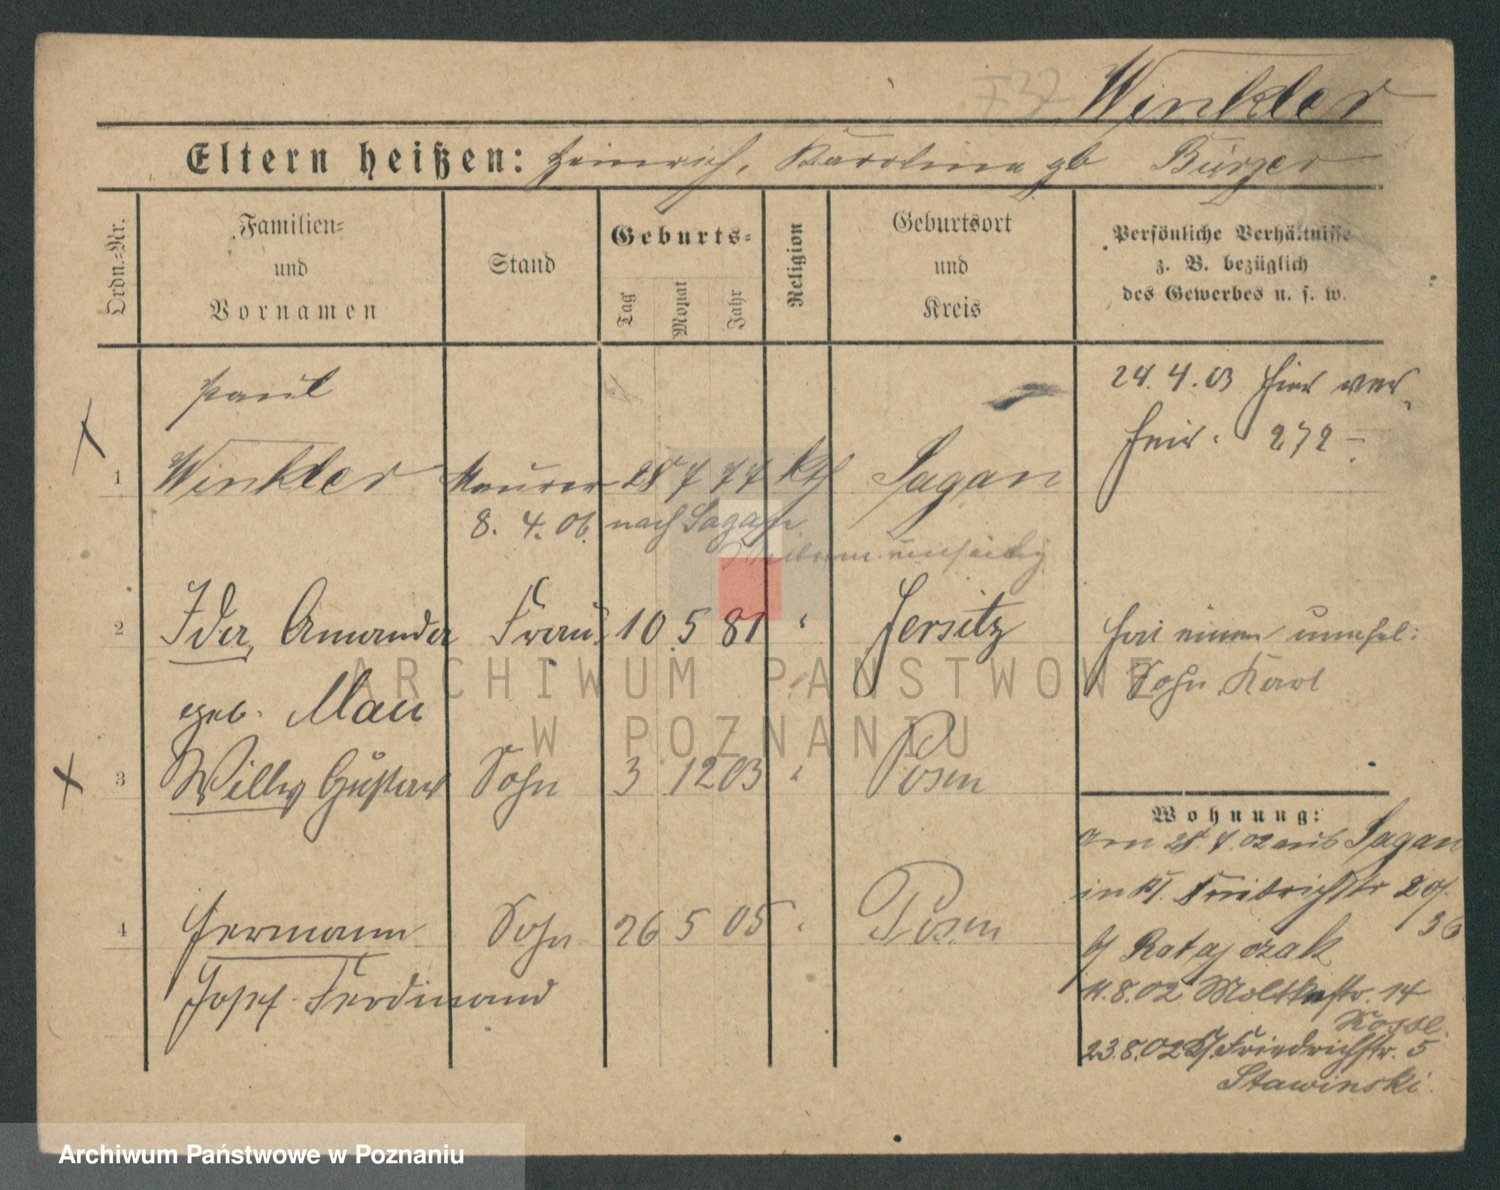 Winkler
Eltern heißen: Heinrich, Karolina gb Bürger
Ordn.-Nr.
Familien-
und
Vornamen
Stand
Geburts-
Tag
Monat
Jahr
Religion
Geburtsort
und
Kreis
Persönliche Verhältnisse
z. B. bezüglich
des Gewerbes u. s. w.
Paul
24. 4. 03 hier ver-
heir. 272
1 Winkler Maurer 28 7 77 kth Sagan
8. 4. 06 nach Sagan
2 Ida, Amanda Frau 10 5 81 " Jersitz
hat einen unehel:
Sohn Karl
geb. Mau
3 Willy Gustav Sohn 3 12 03 " Posen
Wohnung:
Am 28. 7. 02 aus Sagan
in Kl. Friedrichstr 29/
36
4 Hermann Sohn 26 5 05 " Posen
b/ Ratajczak
Josef Ferdinand
11. 8. 02 Moltkestr. 14
23. 8. 02 Kl. Friedrichstr. 5
Stawinski
ARCHIWUM PAŃSTWOWE
W POZNANIU
Archiwum Państwowe w Poznaniu